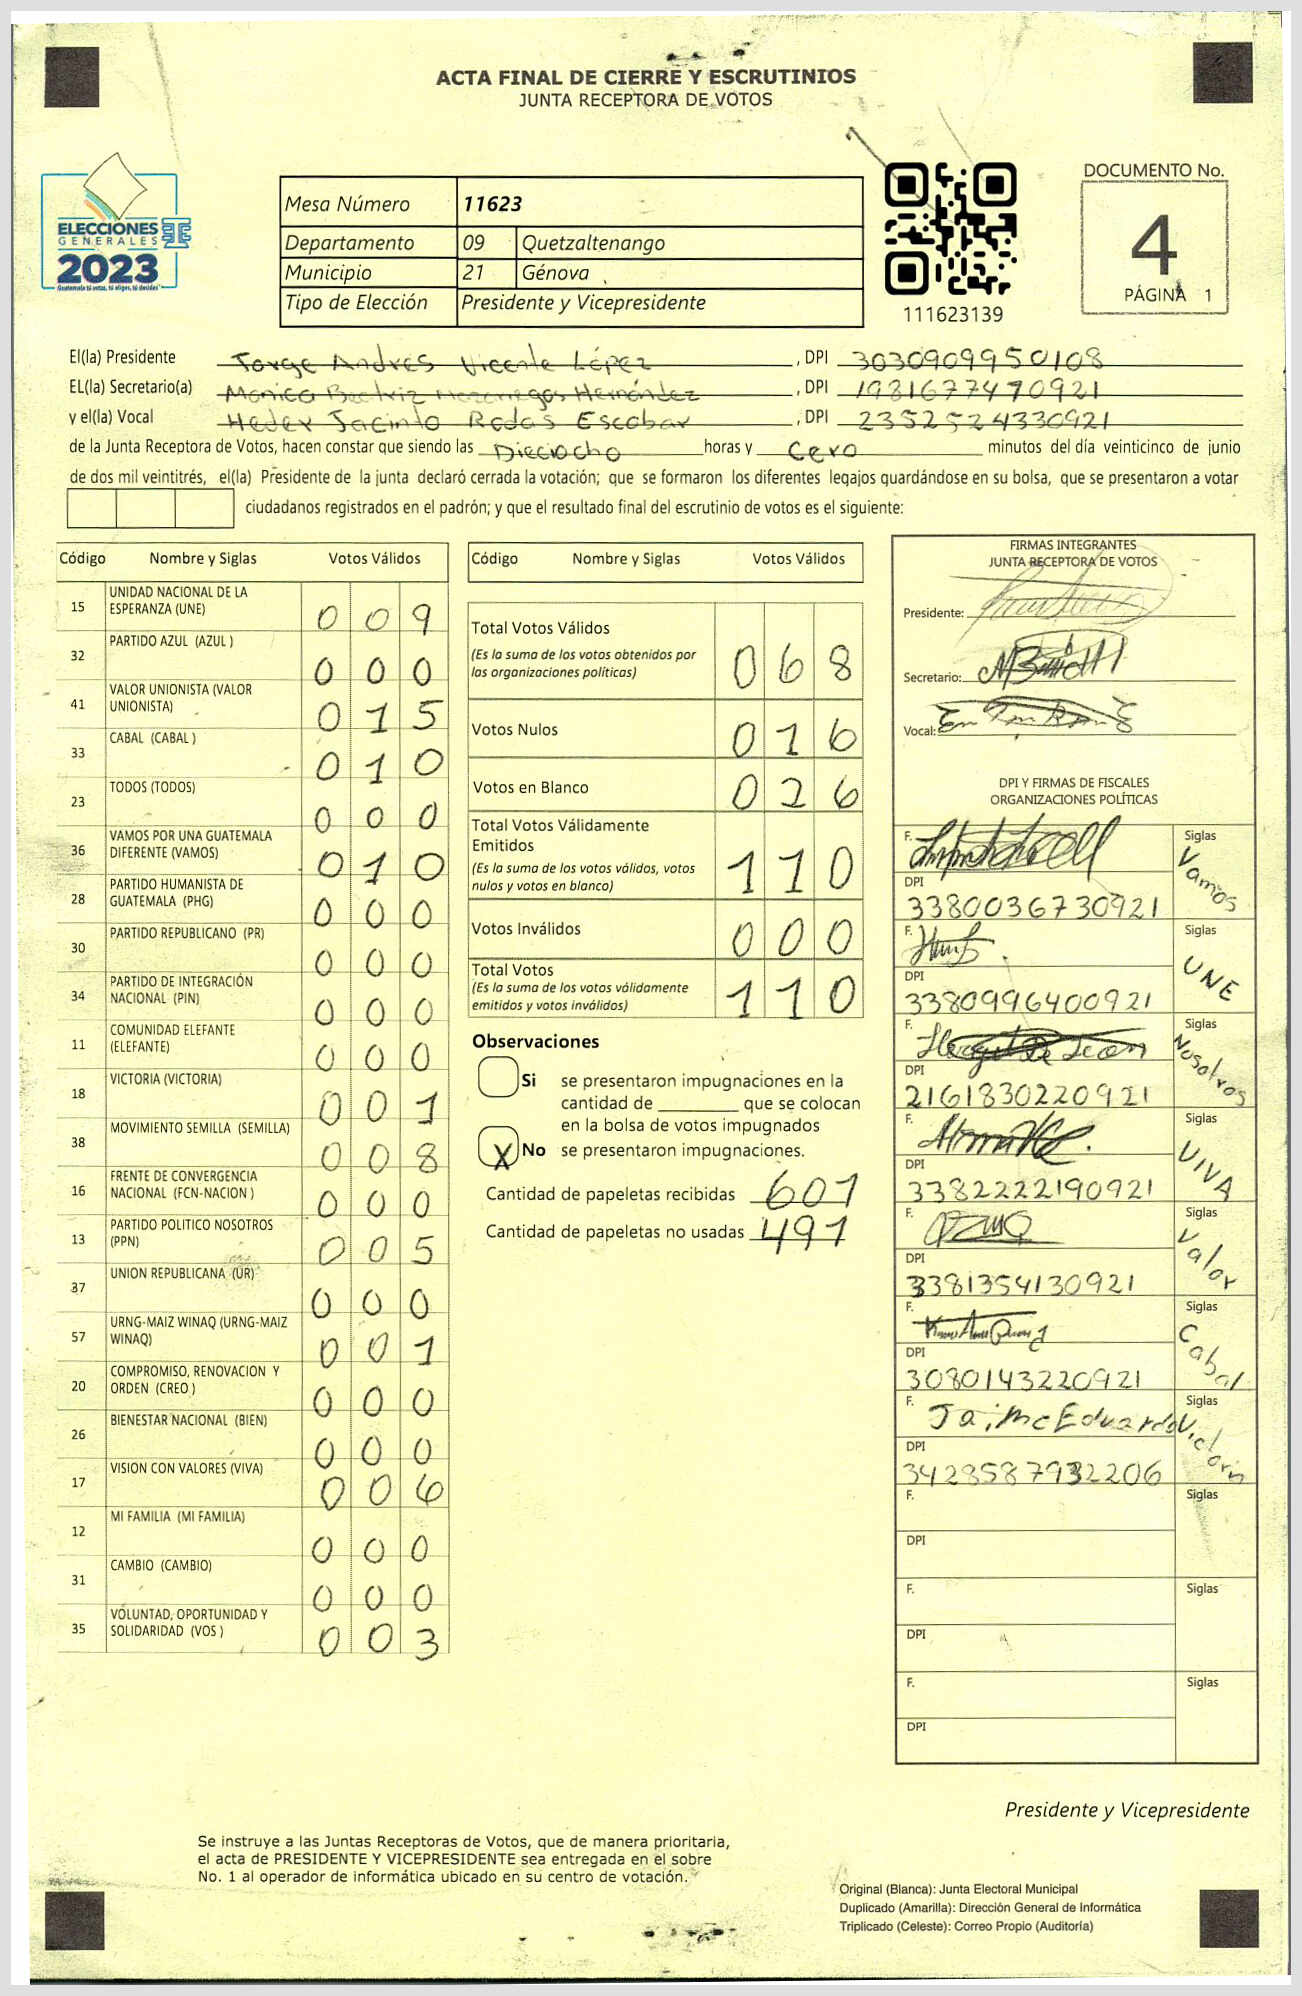 ACTA FINAL DE CIERRE Y ESCRUTINIOS
JUNTA RECEPTORA DE VOTOS
ELECCIONES
GENERALES
2023
Guatemala tú votas, tú eliges, tú decides
Mesa Número 11623
Departamento 09 Quetzaltenango
Municipio 21 Génova
Tipo de Elección Presidente y Vicepresidente
111623139
DOCUMENTO No.
4
PÁGINA 1
El(la) Presidente Jorge Andrés Vicente López , DPI 3030909950108
EL(la) Secretario(a) Monica Beatriz Mazariegos Hernández , DPI 1981677470921
y el(la) Vocal Heder Jacinto Rodas Escobar , DPI 2352524330921
de la Junta Receptora de Votos, hacen constar que siendo las Dieciocho horas y Cero minutos del día veinticinco de junio
de dos mil veintitrés, el(la) Presidente de la junta declaró cerrada la votación; que se formaron los diferentes legajos guardándose en su bolsa, que se presentaron a votar
ciudadanos registrados en el padrón; y que el resultado final del escrutinio de votos es el siguiente:
Código Nombre y Siglas Votos Válidos
15 UNIDAD NACIONAL DE LA ESPERANZA (UNE) 009
32 PARTIDO AZUL (AZUL ) 000
41 VALOR UNIONISTA (VALOR UNIONISTA) 015
33 CABAL (CABAL ) 010
23 TODOS (TODOS) 000
36 VAMOS POR UNA GUATEMALA DIFERENTE (VAMOS) 010
28 PARTIDO HUMANISTA DE GUATEMALA (PHG) 000
30 PARTIDO REPUBLICANO (PR) 000
34 PARTIDO DE INTEGRACIÓN NACIONAL (PIN) 000
11 COMUNIDAD ELEFANTE (ELEFANTE) 000
18 VICTORIA (VICTORIA) 001
38 MOVIMIENTO SEMILLA (SEMILLA) 008
16 FRENTE DE CONVERGENCIA NACIONAL (FCN-NACION ) 000
13 PARTIDO POLITICO NOSOTROS (PPN) 005
37 UNION REPUBLICANA (UR) 000
57 URNG-MAIZ WINAQ (URNG-MAIZ WINAQ) 001
20 COMPROMISO, RENOVACION Y ORDEN (CREO ) 000
26 BIENESTAR NACIONAL (BIEN) 000
17 VISION CON VALORES (VIVA) 006
12 MI FAMILIA (MI FAMILIA) 000
31 CAMBIO (CAMBIO) 000
35 VOLUNTAD, OPORTUNIDAD Y SOLIDARIDAD (VOS ) 003
Código Nombre y Siglas Votos Válidos
Total Votos Válidos 068
(Es la suma de los votos obtenidos por
las organizaciones políticas)
Votos Nulos 016
Votos en Blanco 026
Total Votos Válidamente
Emitidos 110
(Es la suma de los votos válidos, votos
nulos y votos en blanco)
Votos Inválidos 000
Total Votos 110
(Es la suma de los votos válidamente
emitidos y votos inválidos)
Observaciones
Si se presentaron impugnaciones en la
cantidad de ________ que se colocan
en la bolsa de votos impugnados
X No se presentaron impugnaciones.
Cantidad de papeletas recibidas 601
Cantidad de papeletas no usadas 491
FIRMAS INTEGRANTES
JUNTA RECEPTORA DE VOTOS
Presidente:
Secretario:
Vocal:
DPI Y FIRMAS DE FISCALES
ORGANIZACIONES POLÍTICAS
F. Siglas Vamos
DPI
3380036730921
F. Siglas UNE
DPI
3380996400921
F. Siglas Nosotros
DPI
2161830220921
F. Siglas VIVA
DPI
3382222190921
F. Siglas Valor
DPI
3381354130921
F. Siglas Cabal
DPI
3080143220921
F. Jaime Eduardo Siglas Victoria
DPI
3428587932206
F. Siglas
DPI
F. Siglas
DPI
F. Siglas
DPI
Presidente y Vicepresidente
Se instruye a las Juntas Receptoras de Votos, que de manera prioritaria,
el acta de PRESIDENTE Y VICEPRESIDENTE sea entregada en el sobre
No. 1 al operador de informática ubicado en su centro de votación.
Original (Blanca): Junta Electoral Municipal
Duplicado (Amarilla): Dirección General de Informática
Triplicado (Celeste): Correo Propio (Auditoría)